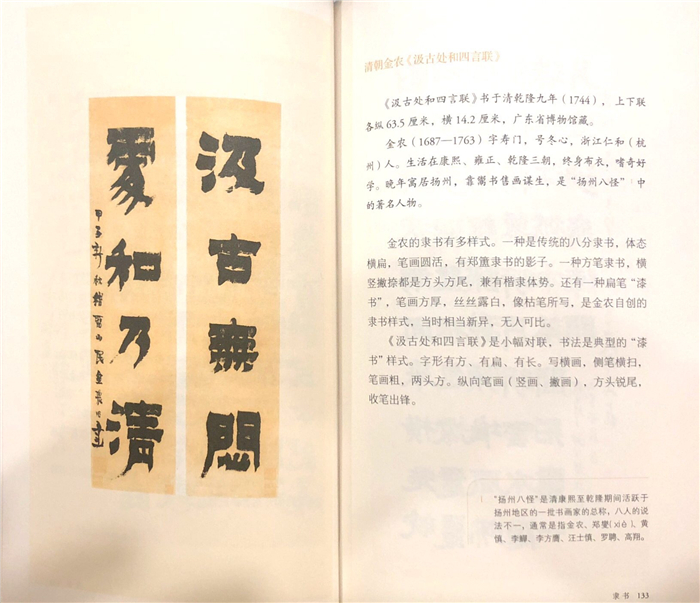 汲古無悶
處和乃清
甲子新秋稽留山民金農
清朝金农《汲古处和四言联》
《汲古处和四言联》书于清乾隆九年（1744），上下联
各纵 63.5 厘米，横 14.2 厘米，广东省博物馆藏。
金农（1687—1763）字寿门，号冬心，浙江仁和（杭
州）人。生活在康熙、雍正、乾隆三朝，终身布衣，嗜奇好
学。晚年寓居扬州，靠鬻书售画谋生，是“扬州八怪”中
的著名人物。
金农的隶书有多样式。一种是传统的八分隶书，体态
横扁，笔画圆活，有郑簠隶书的影子。一种方笔隶书，横
竖撇捺都是方头方尾，兼有楷隶体势。还有一种扁笔“漆
书”，笔画方厚，丝丝露白，像枯笔所写，是金农自创的
隶书样式，当时相当新异，无人可比。
《汲古处和四言联》是小幅对联，书法是典型的“漆
书”样式。字形有方、有扁、有长。写横画，侧笔横扫，
笔画粗，两头方。纵向笔画（竖画、撇画），方头锐尾，
收笔出锋。
“扬州八怪”是清康熙至乾隆期间活跃于
扬州地区的一批书画家的总称，八人的说
法不一，通常是指金农、郑燮(xiè)、黄
慎、李鱓、李方膺、汪士慎、罗聘、高翔。
隶书 133